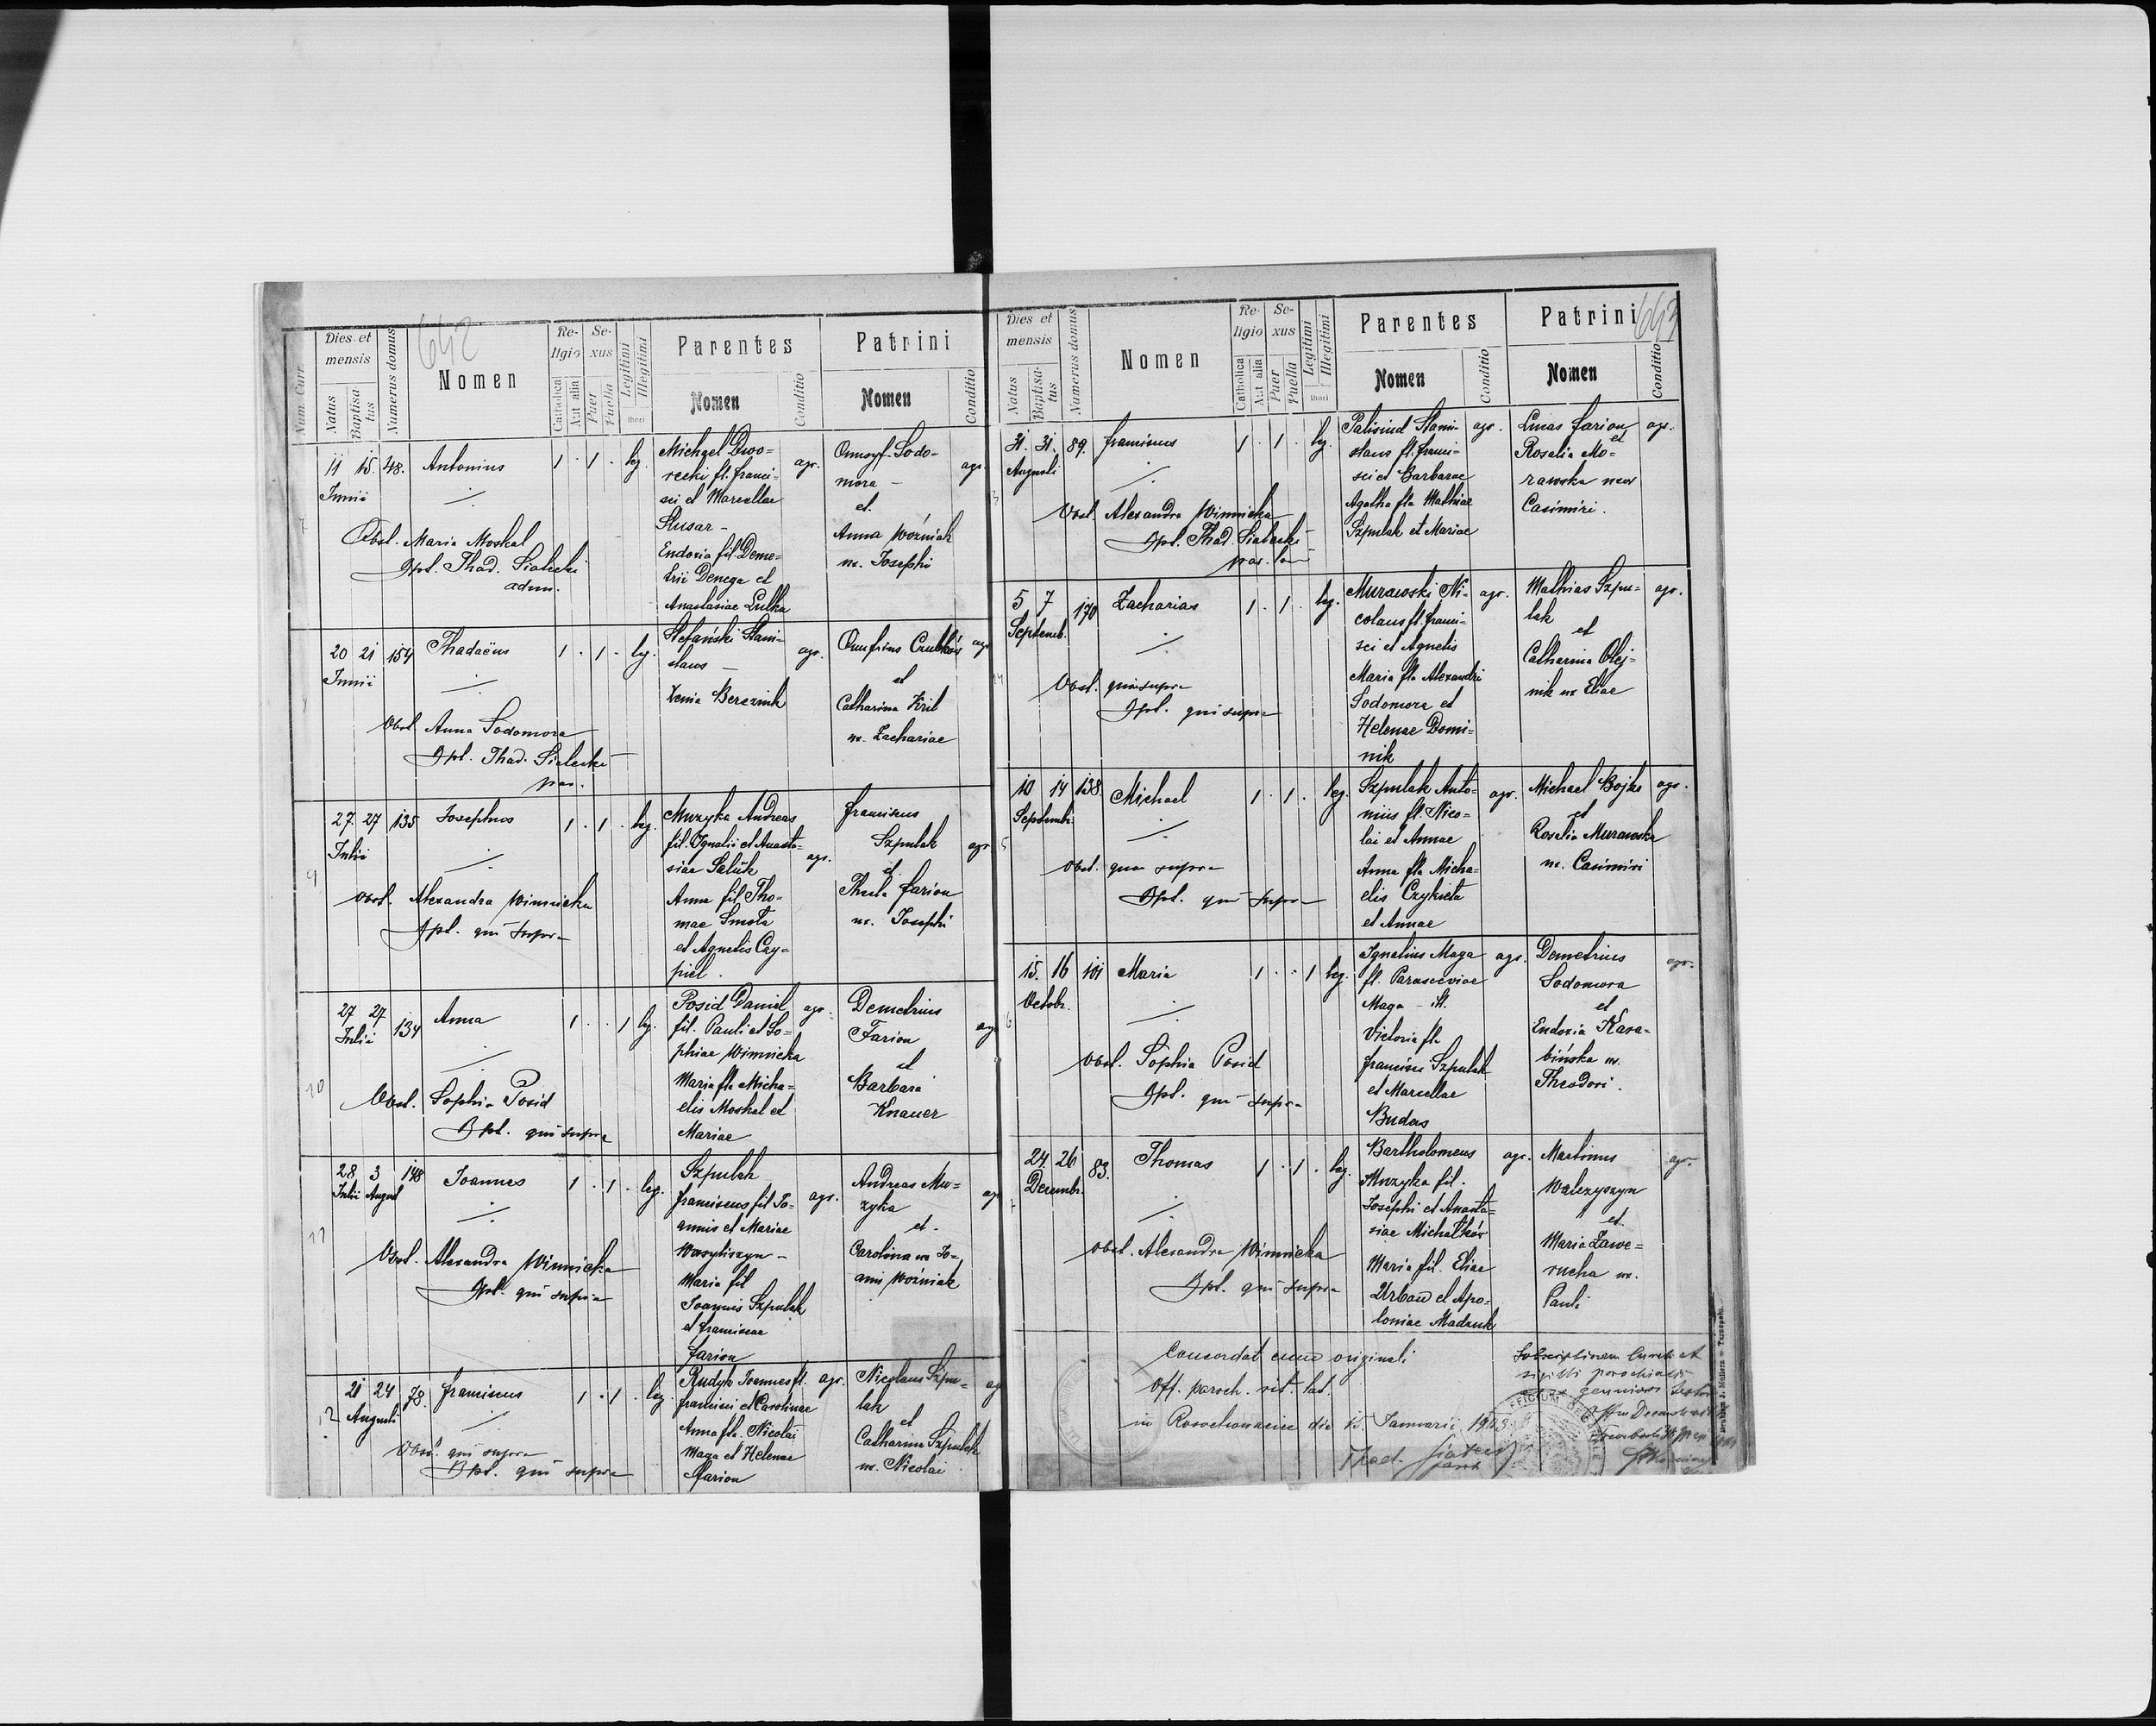 642
Num. Curr.
Dies et mensis
Natus
Baptisatus
Numerus domus
Nomen
Religio
Catholica
Aut alia
Sexus
Puer
Puella
Legitimi
Illegitimi
thori
Parentes
Nomen
Conditio
Patrini
Nomen
Conditio
7
11 15. 48. Antonius 1 . 1 . leg.
Junii
Obst. Maria Moskal
Bpt. Thad. Sialecki
adm.
Michael Dwo=
recki fl. Franci-
sci et Marcellae
Slusar -
Eudoxia fil. Deme=
trii Denega et
Anastasiae Lulka
agr.
Onnoyf. Sodo-
mora -
et
Anna Woźniak
ux. Josephi
agr.
20 21 154 Thadaëus 1 . 1 . leg.
Junii
Obst. Anna Sodomora
Bpt. Thad. Sialecki
par.
Stefański Stani-
slaus -
Xenia Bereznik
agr.
Onufrius
et
Catharina Kril
ux. Zachariae
agr
9
27 27 135 Josephus 1 . 1 . leg.
Julii
Obst. Alexandra Winnicka
Bpt. qui supra
Muzyka Andreas
fil. Ignatii et Anasta-
siae Saluk
Anna fil. Tho-
mae Smota
et Agnetis Czy=
piel.
agr.
Franciscus
Szpulak
et
Thecla Farion
ux. Josephi
agr
10
27 27 134 Anna 1 . . 1 leg.
Julii
Obst. Sophia Posid
Bpt. qui supra
Posid Daniel
fil. Pauli et So=
phiae Winnicka
Maria fla Micha=
elis Moskal et
Mariae
agr.
Demetrius
Farion
et
Barbara
Knauer
agr
11
28 3 148 Joannes 1 . 1 . leg.
Julii August
Obst. Alexandra Winnicka
Bpt. qui supra
Szpulak
Franciscus fil. Jo-
annis et Mariae
Wasyliszyn -
Maria fil
Joannis Szpulak
et Franciscae
Farion
agr.
Andreas Mu=
zyka
et -
Carolina ux Jo-
anni Woźniak
agr
12
21 24 78. Franciscus 1 . 1 . leg.
Augusti
Obst. qui supra
Bpt. qui supra
Rudyk Joannes fl.
Francisci et Carolinae
Anna fla. Nicolai
Maga et Helenae
Farion
agr.
Nicolaus Szpu=
lak
et
Catharina Szpulak
ux. Nicolai
ag
643
Dies et mensis
Natus
Baptisatus
Numerus domus
Nomen
Religio
Catholica
Aut alia
Sexus
Puer
Puella
Legitimi
Illegitimi
thori
Parentes
Nomen
Conditio
Patrini
Nomen
Conditio
3
31. 31. 89. Franciscus 1 . 1 . leg.
Augusti
Obst. Alexandra Winnicka
Bpt. Thad. Sialecki
par.
Palisiud Stani-
slaus fl. Franci-
sci et Barbarae
Agatha fla Mathiae
Szpulak et Mariae
agr.
Lucas Farion
et
Rosalia Mo=
rawska uxor
Casimiri.
agr.
5 7 170 Zacharias 1 . 1 . leg.
Septemb.
Obst. qui supra
Bpt. qui supra
Murawski Ni-
colaus fl. Franci-
sci et Agnetis
Maria fla Alexandri
Sodomora et
Helenae Domi=
nik
agr.
Mathias Szpu=
lak
et
Catharina Olej=
nik ux Eliae
agr.
5
10 14 138. Michael 1 . 1 . leg.
Septemb.
Obst. quae supra
Bpt. qui supra
Szpulak Anto=
nius fl. Nico=
lai et Annae
Anna fla Micha=
elis Czykieta
et Annae
agr.
Michael Bojko
et
Rosalia Murawska
ux. Casimiri
agr.
6
15. 16 101 Maria 1 . . 1 leg.
Octobr.
Obst. Sophia Posid
Bpt. qui supra
Ignatius Maga
fl. Parasceviae
Maga - ill.
Victoria fla
Francisci Szpulak
et Marcellae
Budas
agr.
Demetrius
Sodomora
et
Eudoxia Kara-
bińska ux.
Theodori.
agr.
24. 26 83. Thomas 1 . 1 . leg.
Decembr.
Obst. Alexandra Winnicka
Bpt. qui supra
Bartholomeus
Muzyka fil.
Josephi et Anasta=
siae Michałków
Maria fil. Eliae
Urban et Apo=
loniae Madzuk
agr.
Martinus
Walczyszyn
et.
Maria Zawe=
rucha ux.
Pauli
agr.
Concordat cum originali
Off. paroch. rit. lat.
in Rosochowaciec die 15. Januarii 1923
Thad. Sialecki
Subscriptionem Curati et
sigilli parochialis
genuinas testor